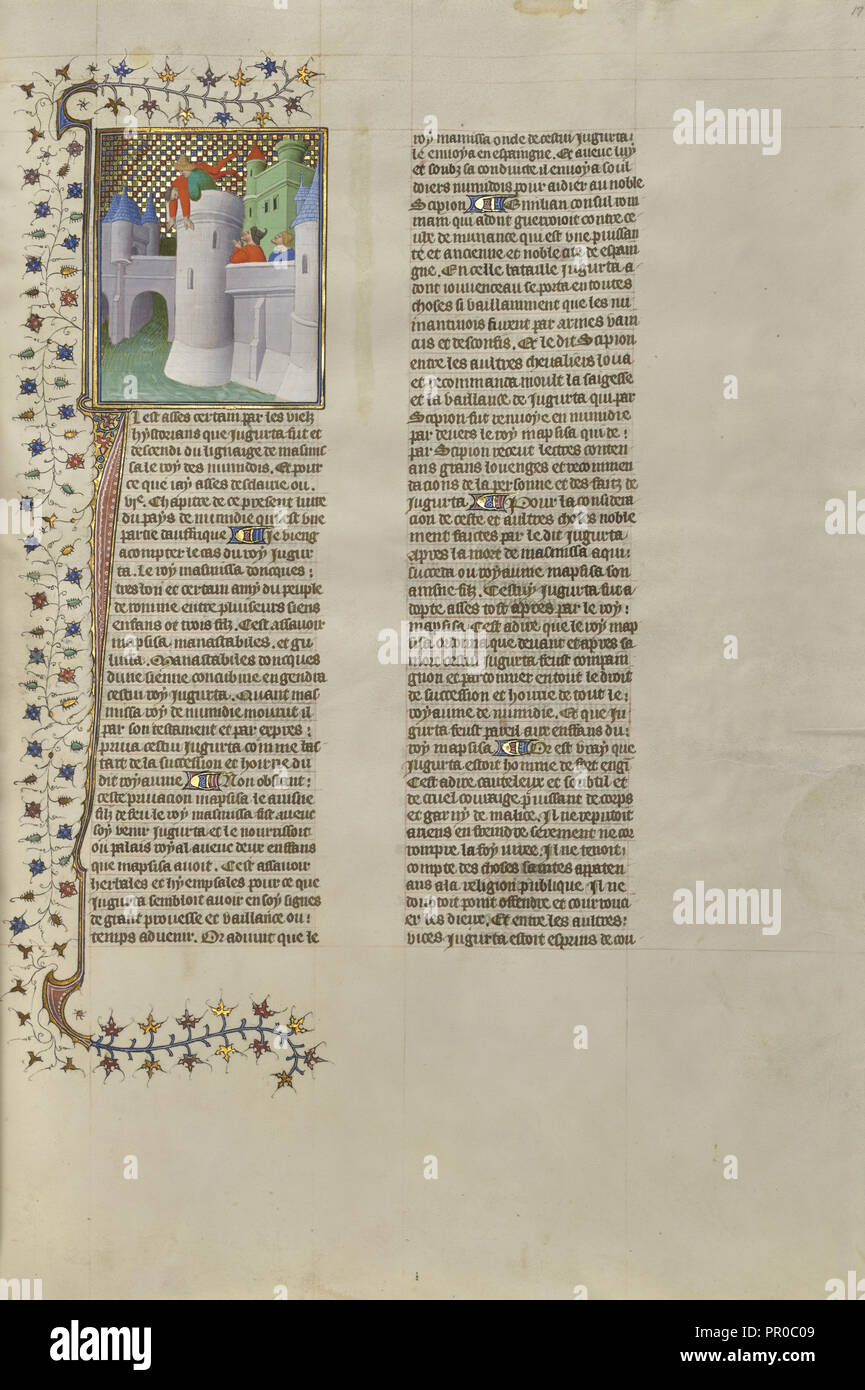 17
Il est asses certain par les vielz
hystorians que Jugurta fut et
descendi du lignaige de masinis
sa le roy des numidois. Et pour
ce que iay asses desclaire ou
vie. Chapitre de ce present liure
du pays de numidie qui est vne
partie dauffrique Je vieng
a compter le cas du roy Jugur
ta. Le roy masinissa doncques
tres bon et certain amy du peuple
de romme entre pluiseurs siens
enfans ot trois filz. Cest assauoir
mapsisa, manastabiles, et gu
lussa. Manastabiles doncques
dune sienne concubine engendra
cestui roy Jugurta. Quant mas
nissa roy de numidie mourut il
par son testament et par expres
priua cestui Jugurta comme bas
tart de la succession et hoirrie du
dit royaume Non obstent
ceste priuacion mapsisa le aisne
filz de feu le roy masinissa fist auecc
soy venir Jugurta et le nourrissoit
ou palais royal auecc deux enffans
que mapsisa auoit. Cest assauoir
herbales et hyempsales pour ce que
Jugurta sembloit auoir en soy signes
de grant prouesse et vaillance ou
temps aduenir. Or aduint que le
roy manissa onde de cestui Jugurta
le enuoya en espaingne. Et auecc luy
et soubz sa conduicte il enuoya soul
doiers numidois pour aidier au noble
Scipion Emilian consul rom
main qui adont guerrioit contre ce
ulx de numance qui est vne puissan
te et ancienne et noble cite de espain
gne. En celle bataille Jugurta a
dont iouuenceau se porta en toutes
choses si vaillamment que les nu
mantinois furent par armes vain
cus et desconfis. Et le dit Scipion
entre les aultres cheualiers loua
et recommanda moult la saigesse
et la vaillance de Jugurta qui par
Scipion fut renuoye en numidie
par deuers le roy mapsisa qui de
par Scipion receut lectres conten
ans grans louenges et recommen
dacions de la personne et des faitz de
Jugurta Pour la considera
cion de ceste et aultres choses noble
ment faictes par le dit Jugurta
apres la mort de masinissa a qui
succeda ou royaume mapsisa son
aisne filz. Cestuy Jugurta fut a
dopte asses tost apres par le roy
mapsisa Cest adire que le roy map
sisa ordonna que deuant et apres sa
mort cestui Jugurta feust compain
gnon et parconnier en tout le droit
de succession et hoirrie de tout le
royaume de numidie. Et que Ju
gurta feust pareil aux enffans du
roy mapsisa Or est vray que
Jugurta estoit homme de fret engi
Cest adire cauteleux et soubtil et
de cruel couraige puissant de corps
et garny de malice. Il ne reputoit
a riens enfraindre serement ne cor
rompre la foy iuree. Il ne tenoit
compte des choses saintes apparten
ans a la religion publique Il ne
doubtoit point offendre et courrouci
er les dieux. Et entre les aultres
vices Jugurta estoit esprins de cou
alamy
Image ID: PR0C09
www.alamy.com